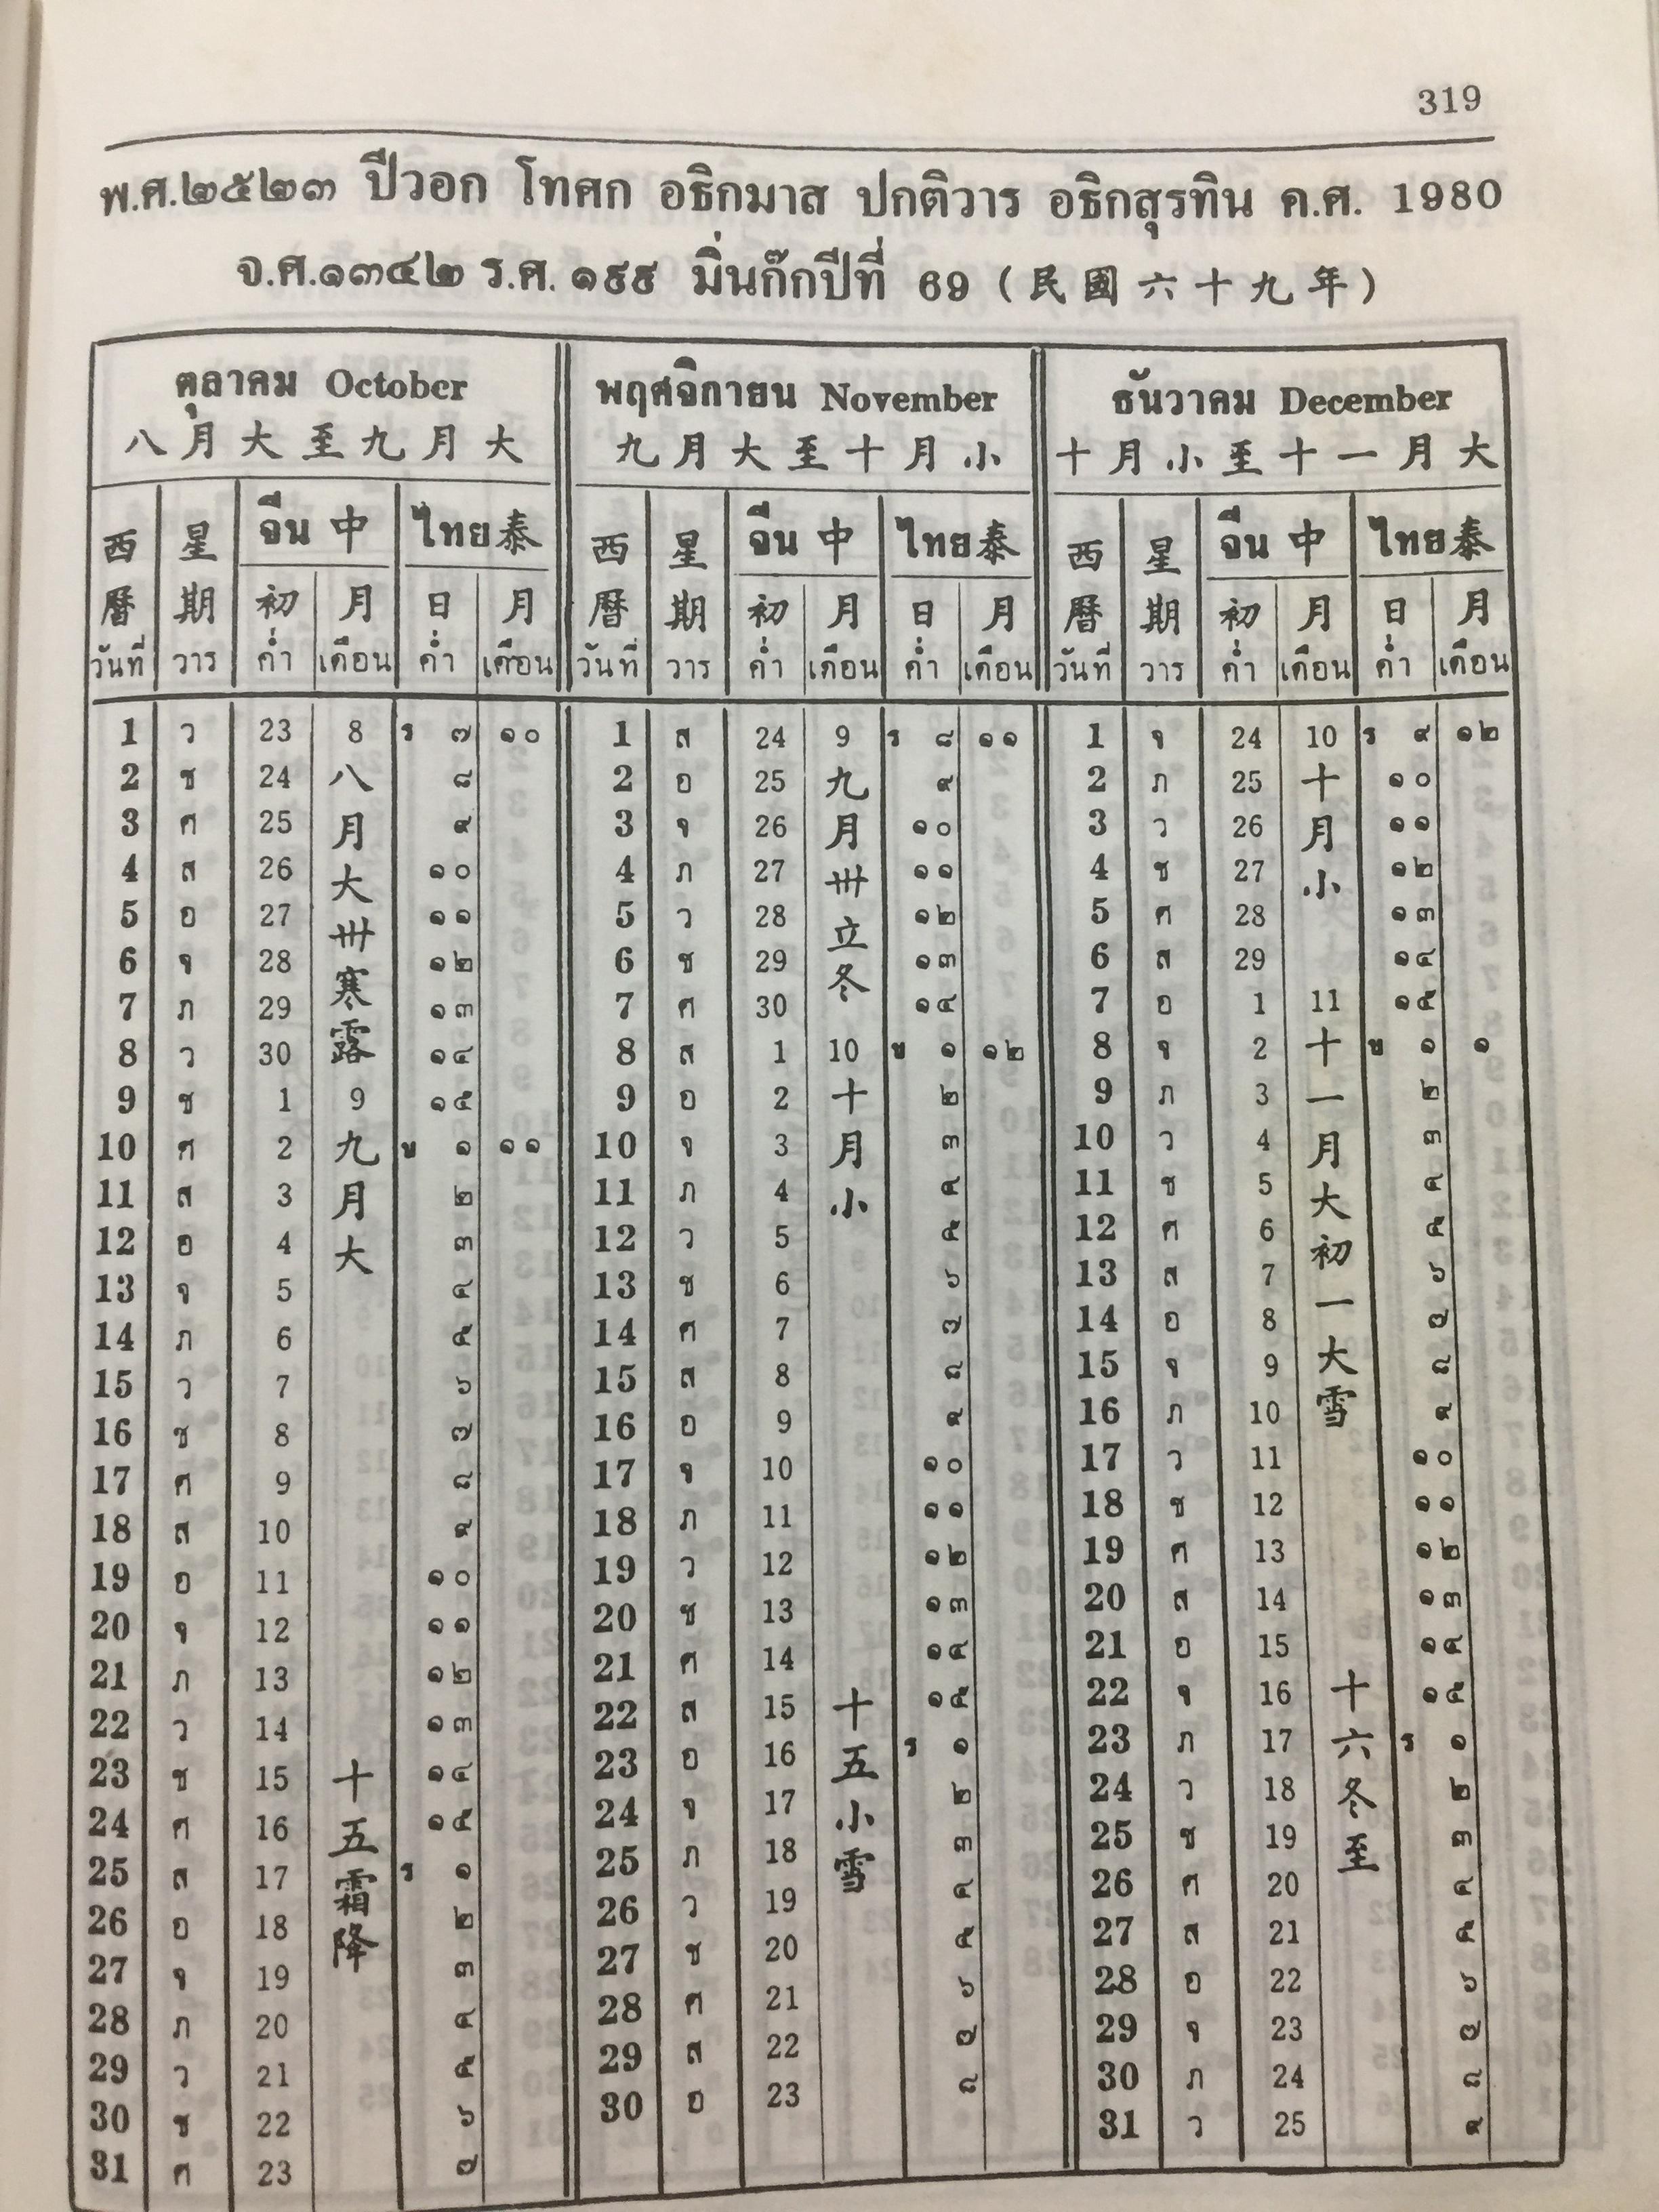 319
พ.ศ.๒๕๒๓ ปีวอก โทศก อธิกมาส ปกติวาร อธิกสุรทิน ค.ศ. 1980
จ.ศ.๑๓๔๒ ร.ศ. ๑๙๙ มิ่นก๊กปีที่ 69 (民國六十九年)
ตุลาคม October พฤศจิกายน November ธันวาคม December
八月大至九月大 九月大至十月小 十月小至十一月大
西 星 จีน中 ไทย泰 西 星 จีน中 ไทย泰 西 星 จีน中 ไทย泰
曆 期 初 月 日 月 曆 期 初 月 日 月 曆 期 初 月 日 月
วันที่ วาร ค่ำ เดือน ค่ำ เดือน วันที่ วาร ค่ำ เดือน ค่ำ เดือน วันที่ วาร ค่ำ เดือน ค่ำ เดือน
1 ว 23 8 ร ๗ ๑๐ 1 ส 24 9 ร ๘ ๑๑ 1 จ 24 10 ร ๙ ๑๒
2 ช 24 八 ๘ 2 อ 25 九 ๙ 2 ภ 25 十 ๑๐
3 ศ 25 月 ๙ 3 จ 26 月 ๑๐ 3 ว 26 月 ๑๑
4 ส 26 大 ๑๐ 4 ภ 27 卅 ๑๑ 4 ช 27 小 ๑๒
5 อ 27 卅 ๑๑ 5 ว 28 立 ๑๒ 5 ศ 28 ๑๓
6 จ 28 寒 ๑๒ 6 ช 29 冬 ๑๓ 6 ส 29 ๑๔
7 ภ 29 露 ๑๓ 7 ศ 30 ๑๔ 7 อ 1 11 ๑๕
8 ว 30 ๑๔ 8 ส 1 10 ข ๑ ๑๒ 8 จ 2 十 ข ๑ ๑
9 ช 1 9 ๑๕ 9 อ 2 十 ๒ 9 ภ 3 一 ๒
10 ศ 2 九 ข ๑ ๑๑ 10 จ 3 月 ๓ 10 ว 4 月 ๓
11 ส 3 月 ๒ 11 ภ 4 小 ๔ 11 ช 5 大 ๔
12 อ 4 大 ๓ 12 ว 5 ๕ 12 ศ 6 初 ๕
13 จ 5 ๔ 13 ช 6 ๖ 13 ส 7 一 ๖
14 ภ 6 ๕ 14 ศ 7 ๗ 14 อ 8 大 ๗
15 ว 7 ๖ 15 ส 8 ๘ 15 จ 9 雪 ๘
16 ช 8 ๗ 16 อ 9 ๙ 16 ภ 10 ๙
17 ศ 9 ๘ 17 จ 10 ๑๐ 17 ว 11 ๑๐
18 ส 10 ๙ 18 ภ 11 ๑๑ 18 ช 12 ๑๑
19 อ 11 ๑๐ 19 ว 12 ๑๒ 19 ศ 13 ๑๒
20 จ 12 ๑๑ 20 ช 13 ๑๓ 20 ส 14 ๑๓
21 ภ 13 ๑๒ 21 ศ 14 ๑๔ 21 อ 15 ๑๔
22 ว 14 ๑๓ 22 ส 15 十 ๑๕ 22 จ 16 十 ๑๕
23 ช 15 十 ๑๔ 23 อ 16 五 ร ๑ 23 ภ 17 六 ร ๑
24 ศ 16 五 ๑๕ 24 จ 17 小 ๒ 24 ว 18 冬 ๒
25 ส 17 霜 ร ๑ 25 ภ 18 雪 ๓ 25 ช 19 至 ๓
26 อ 18 降 ๒ 26 ว 19 ๔ 26 ศ 20 ๔
27 จ 19 ๓ 27 ช 20 ๕ 27 ส 21 ๕
28 ภ 20 ๔ 28 ศ 21 ๖ 28 อ 22 ๖
29 ว 21 ๕ 29 ส 22 ๗ 29 จ 23 ๗
30 ช 22 ๖ 30 อ 23 ๘ 30 ภ 24 ๘
31 ศ 23 ๗ 31 ว 25 ๙